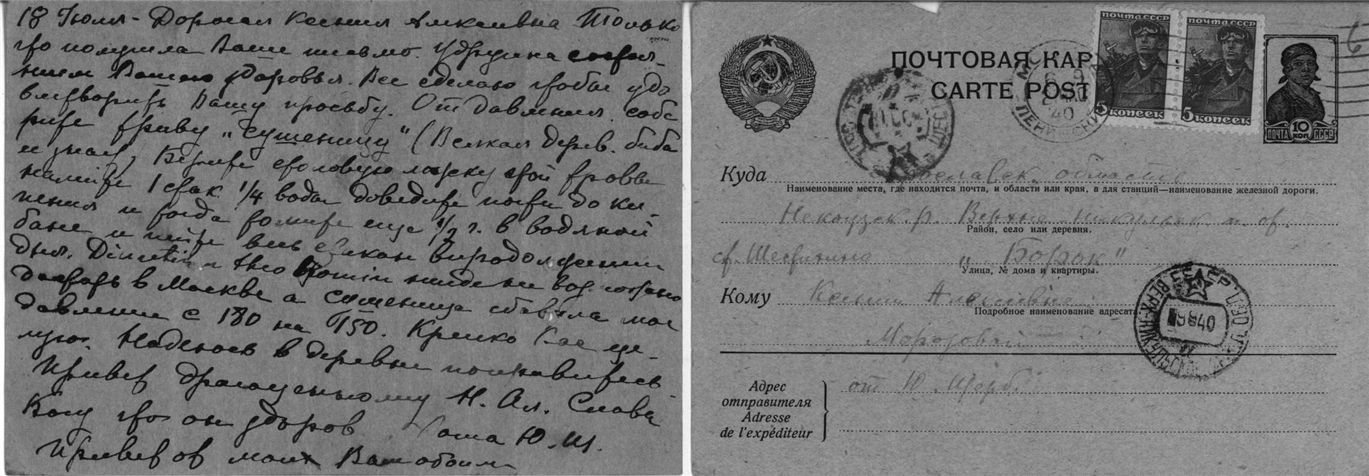 18 Июля - Дорогая Ксения Алексеевна Только
что получила Ваше письмо. Удручена состоя-
нием Вашего здоровья. Все сделаю чтобы удо
влетворить Вашу просьбу. От давления
траву „сушеницу" (Всякая дерев. баба
ее знает) Берите столовую ложку этой травы
налейте 1 стак 1/4 воды доведите почти до ки-
пения и тогда томите еще 1/2 ч. в водяной
бане и пейте весь стакан в продолжении
дня. нигде не
достать в Москве а сушеница сбавила мое
давление с 180 на 150. Крепко Вас це-
лую. Надеюсь в деревне поправитесь
Привет драгоценному Н. Ал. Слава
Богу что он здоров Ваша Ю. Щ.
Привет от моих Вам обоим
ПОЧТА СССР ПОЧТА СССР
5 КОПЕЕК 5 КОПЕЕК
ПОЧТА 10 КОП. СССР
ПОЧТОВАЯ КАР
CARTE POST
Куда области
Наименование места, где находится почта, и области или края, а для станций—наименование железной дороги.
Некоузск. р.
Район, село или деревня.
ст. Шестихино „Борок"
Улица, № дома и квартиры.
Кому Ксении Алексеевне
Подробное наименование адресата
Морозовой
Адрес
отправителя
Adresse
de l'expéditeur
от Ю.